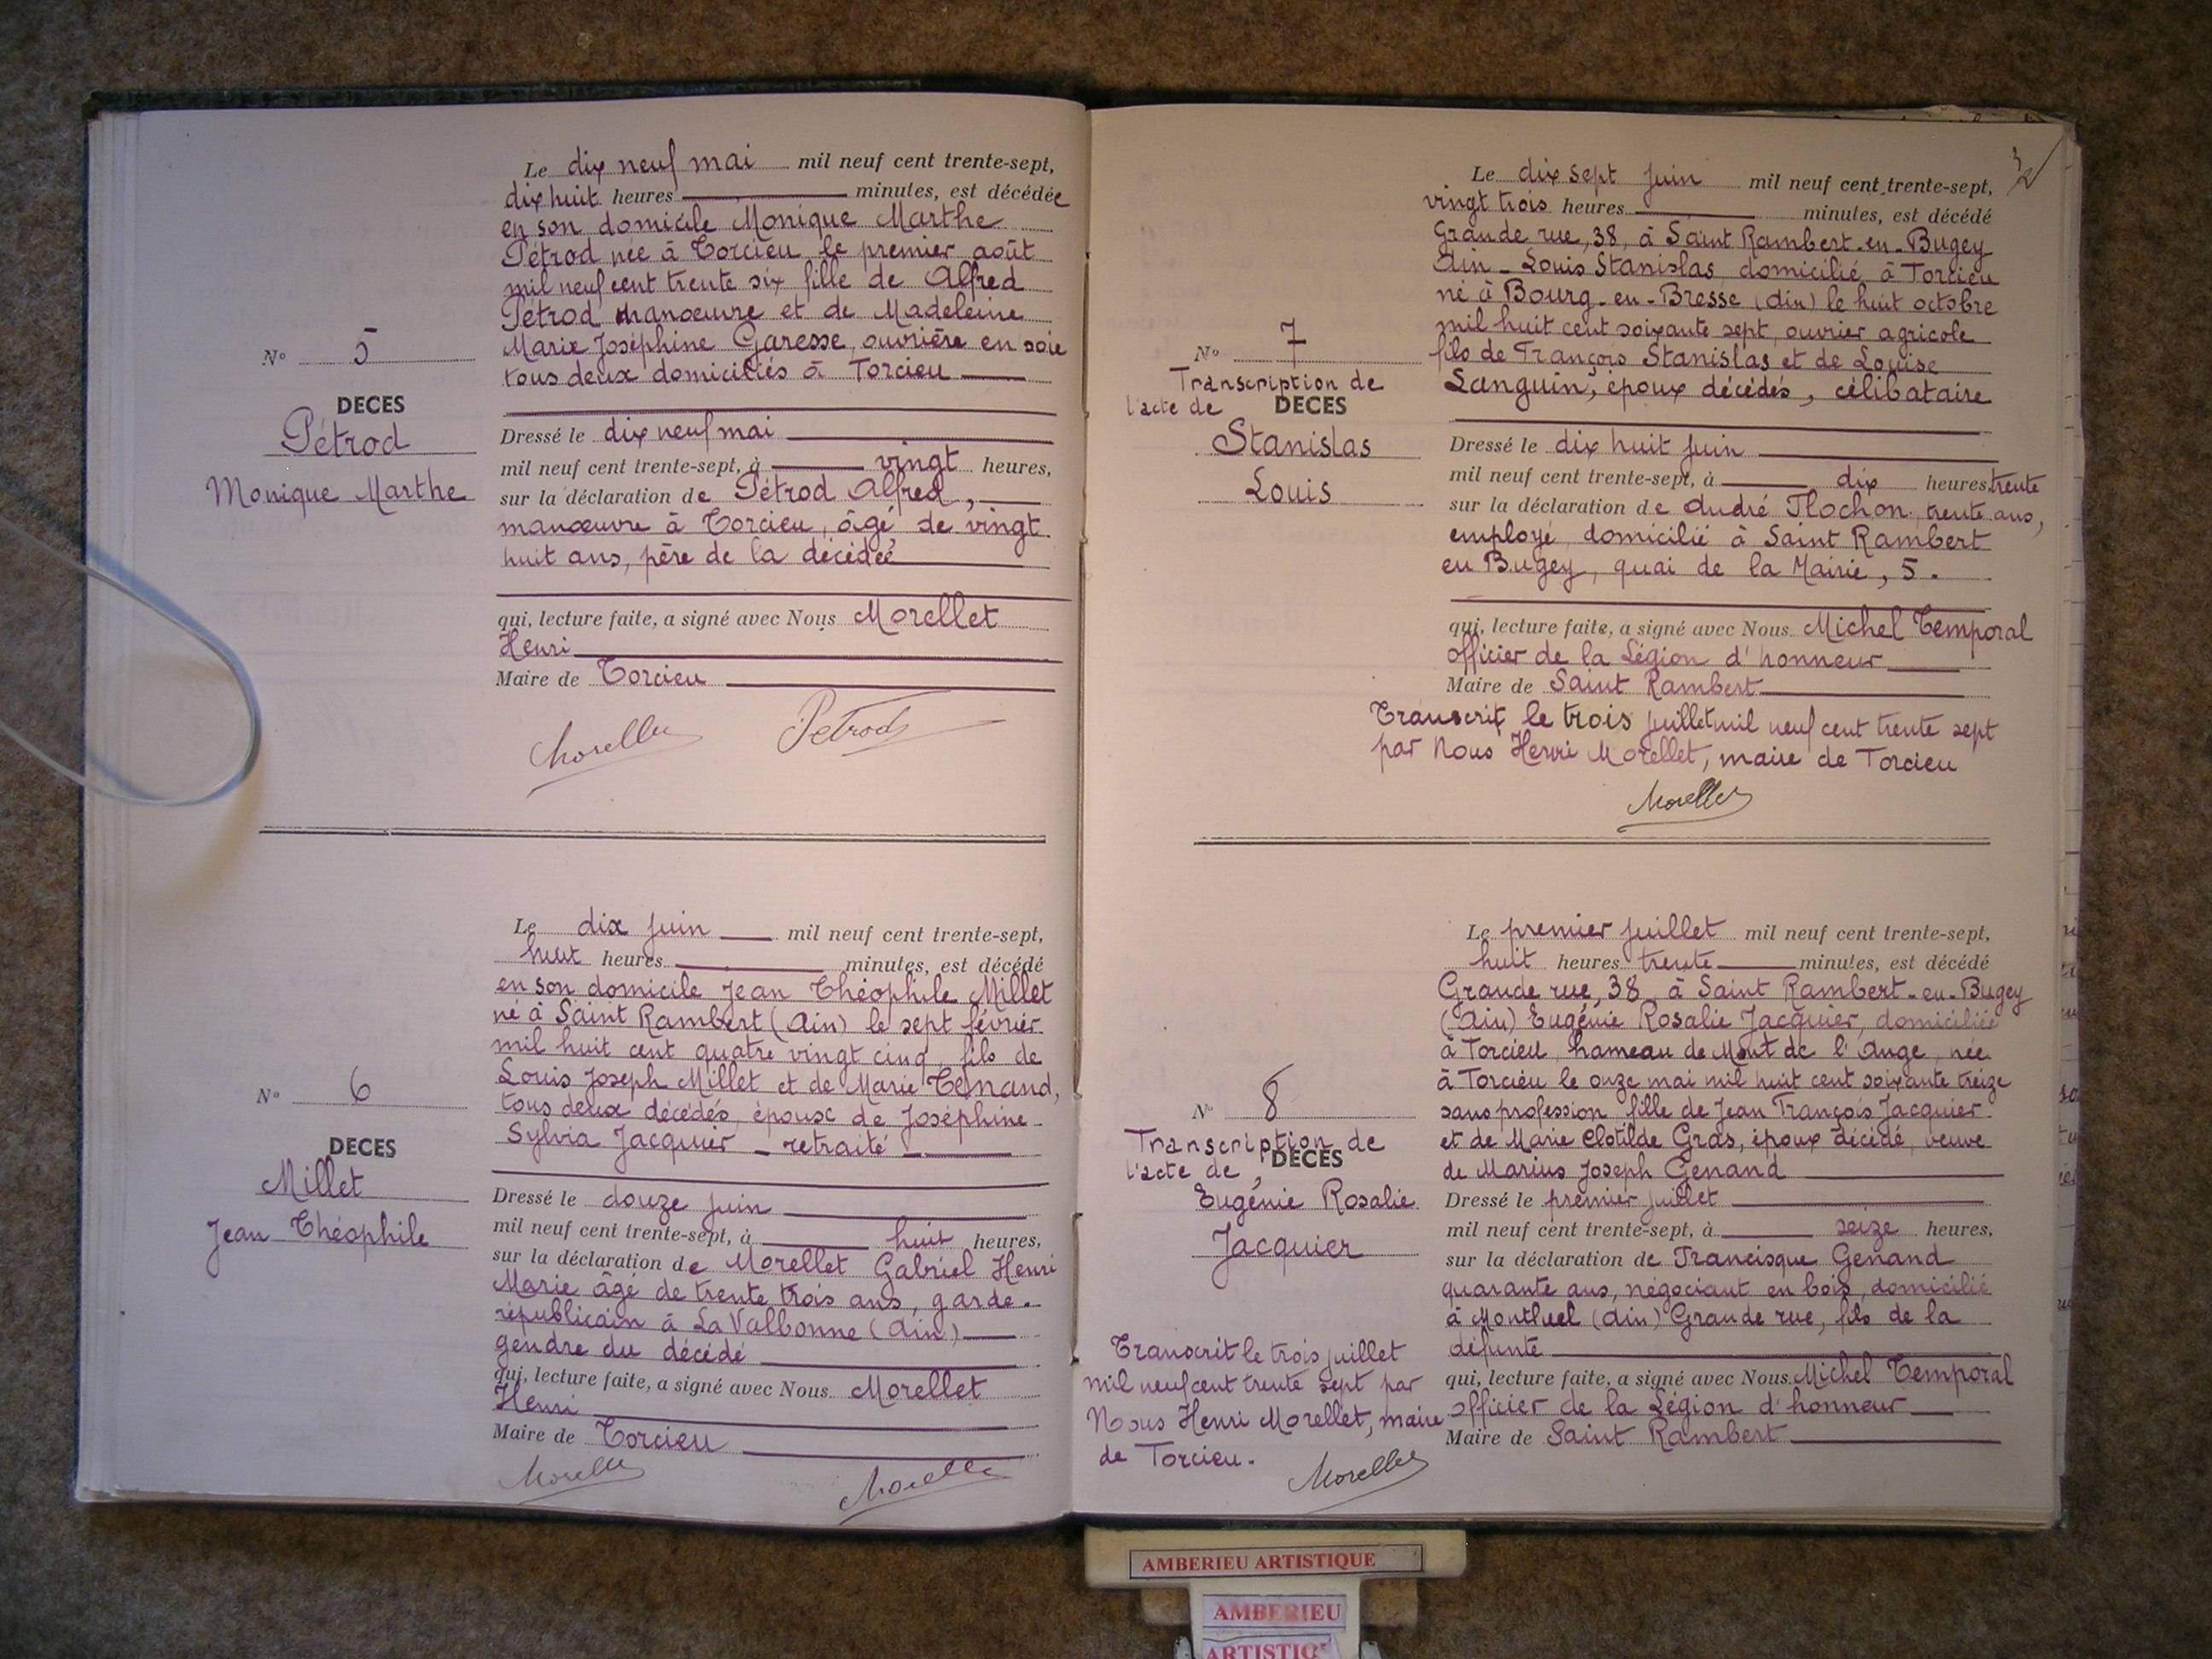 Le dix neuf mai mil neuf cent trente-sept,
dix huit heures minutes, est décédée
en son domicile Monique Marthe
Pétrod née à Torcieu le premier août
mil neuf cent trente six fille de Alfred
Pétrod manœuvre et de Madeleine
Marie Joséphine Garesse, ouvrière en soie
tous deux domiciliés à Torcieu
N° 5
DECES
Pétrod
Monique Marthe
Dressé le dix neuf mai
mil neuf cent trente-sept, à vingt heures,
sur la déclaration de Pétrod Alfred,
manœuvre à Torcieu, âgé de vingt
huit ans, père de la décédée
qui, lecture faite, a signé avec Nous Morellet
Henri
Maire de Torcieu
Morellet Petrod
Le dix juin mil neuf cent trente-sept,
huit heures minutes, est décédé
en son domicile Jean Théophile Millet
né à Saint Rambert (Ain) le sept février
mil huit cent quatre vingt cinq, fils de
Louis Joseph Millet et de Marie
tous deux décédés, époux de Joséphine
Sylvia Jacquier - retraité -
N° 6
DECES
Millet
Jean Théophile
Dressé le douze juin
mil neuf cent trente-sept, à huit heures,
sur la déclaration de Morellet Gabriel Henri
Marie âgé de trente trois ans, garde
républicain à La Valbonne (Ain)
gendre du décédé
qui, lecture faite, a signé avec Nous Morellet
Henri
Maire de Torcieu
Morellet Morellet
Le dix sept juin mil neuf cent trente-sept,
vingt trois heures minutes, est décédé
Grande rue, 38, à Saint Rambert-en-Bugey
Ain - Louis Stanislas, domicilié à Torcieu
né à Bourg-en-Bresse (Ain) le huit octobre
mil huit cent soixante sept, ouvrier agricole
fils de François Stanislas et de Louise
Sanguin, époux décédés, célibataire
N° 7
Transcription de
l'acte de DECES
Stanislas
Louis
Dressé le dix huit juin
mil neuf cent trente-sept, à dix heures, trente
sur la déclaration de André Flochon, trente ans,
employé, domicilié à Saint Rambert
en Bugey, quai de la Mairie, 5.
qui, lecture faite, a signé avec Nous Michel Temporal
officier de la Légion d'honneur
Maire de Saint Rambert
Transcrit le trois juillet mil neuf cent trente sept
par Nous Henri Morellet, maire de Torcieu
Morellet
Le premier juillet mil neuf cent trente-sept,
huit heures trente minutes, est décédé
Grande rue, 38, à Saint Rambert-en-Bugey
(Ain) Eugénie Rosalie Jacquier, domiciliée
à Torcieu, hameau de Mont de l'Ange, née
à Torcieu le onze mai mil huit cent soixante treize
sans profession, fille de Jean François Jacquier
et de Marie Clotilde Gras, époux décédé, veuve
de Marius Joseph Genand
N° 8
Transcription de
l'acte de DECES
Eugénie Rosalie
Jacquier
Dressé le premier juillet
mil neuf cent trente-sept, à seize heures,
sur la déclaration de Francisque Genand
quarante ans, négociant en bois, domicilié
à Montluel (Ain) Grande rue, fils de la
défunte
qui, lecture faite, a signé avec Nous Michel Temporal
officier de la Légion d'honneur
Maire de Saint Rambert
Transcrit le trois juillet
mil neuf cent trente sept par
Nous Henri Morellet, maire
de Torcieu.
Morellet
AMBERIEU ARTISTIQUE
AMBERIEU
ARTISTIQ